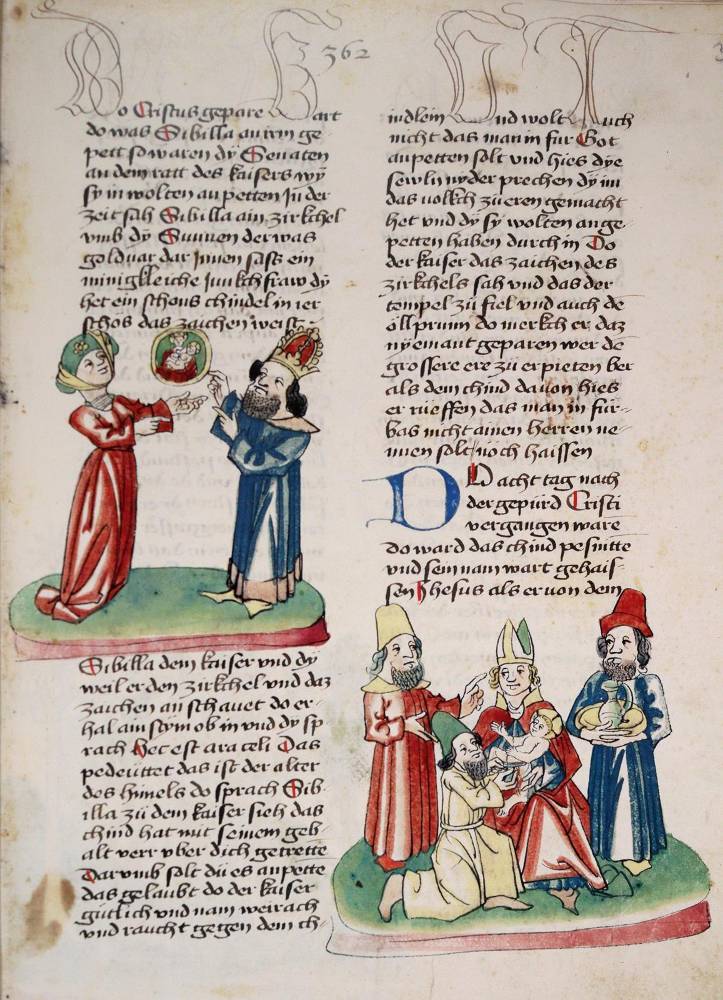 362
Do Cristus gepare Hart
do was Sibilla an irm ge
pett so waren dÿ Senaten
an dem ratt des kaisers wÿ
sy in wolten an petten In der
zeit sah Sibilla ain zirkchel
vmb dÿ Sunnen der was
goldvar dar Innen sass ein
minigkleiche Junkchfraw dÿ
het ein schons chindel in ier
schos das zaichen weist
Sibilla dem kaiser vnd dÿ
weil er den zirkchel vnd daz
zaichen an schauet do er
hal ain stym ob in vnd dÿ sp
rach Hec est ara celi Das
pedeüttet das ist der alter
des himels do sprach Sib
illa zü dem kaiser sieh das
chind hat mit seinem geb
alt verr vber dich getrette
Darvmb solt dü es anpette
das gelaubt do der kaiser
gütlich vnd nam weirach
vnd raucht gegen dem ch
indlein Vnd wolt Auch
nicht das man in für Got
anpetten solt vnd hies dye
sewln nyder prechen dÿ im
das volkch zü eren gemacht
het vnd dÿ sy wolten ange
petten haben durch in Do
der kaiser das zaichen des
zirkchels sah vnd das der
tempel zü fiel vnd auch de
öllprunn do merkch er daz
nÿemant geparen wer de
grossere ere zü erpieten wer
als dem chind davon hies
er rüeffen das man in für
bas nicht ainen herren ne
nnen solt noch haissen
DO acht tag nach
der gepürd Cristi
vergangen ware
do ward das chind pesnitte
vnd sein nam wart gehais
sen Jhesus als er von dem